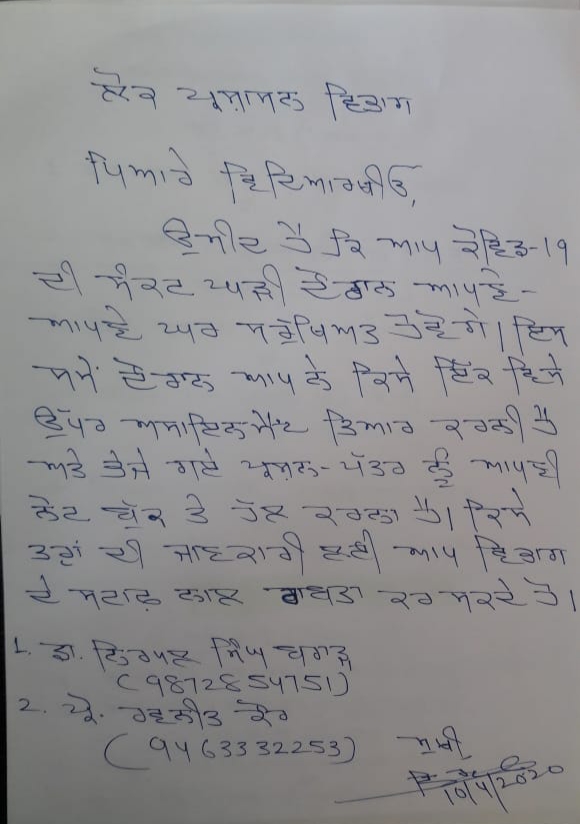 ਲੋਕ ਪ੍ਰਸ਼ਾਸਨ ਵਿਭਾਗ
ਪਿਆਰੇ ਵਿਦਿਆਰਥੀਓ,
ਉਮੀਦ ਹੈ ਕਿ ਆਪ ਕੋਵਿਡ-19
ਦੀ ਸੰਕਟ ਘੜੀ ਦੌਰਾਨ ਆਪਣੇ-
ਆਪਣੇ ਘਰ ਸੁਰੱਖਿਅਤ ਹੋਵੋਗੇ। ਇਸ
ਸਮੇਂ ਦੌਰਾਨ ਆਪ ਨੇ ਕਿਸੇ ਇੱਕ ਵਿਸ਼ੇ
ਉੱਪਰ ਅਸਾਇਨਮੈਂਟ ਤਿਆਰ ਕਰਨੀ ਹੈ
ਅਤੇ ਭੇਜੇ ਗਏ ਪ੍ਰਸ਼ਨ-ਪੱਤਰ ਨੂੰ ਆਪਣੀ
ਨੋਟ ਬੁੱਕ ਤੇ ਹੱਲ ਕਰਨਾ ਹੈ। ਕਿਸੇ
ਤਰ੍ਹਾਂ ਦੀ ਜਾਣਕਾਰੀ ਲਈ ਆਪ ਵਿਭਾਗ
ਦੇ ਸਟਾਫ਼ ਨਾਲ ਰਾਬਤਾ ਕਰ ਸਕਦੇ ਹੋ।
1. ਡਾ. ਨਿਰਮਲ ਸਿੰਘ ਬਰਾੜ
(9872854751)
2. ਪ੍ਰੋ. ਰਵਨੀਤ ਕੌਰ
(9463332253)
ਮੁਖੀ
10/4/2020